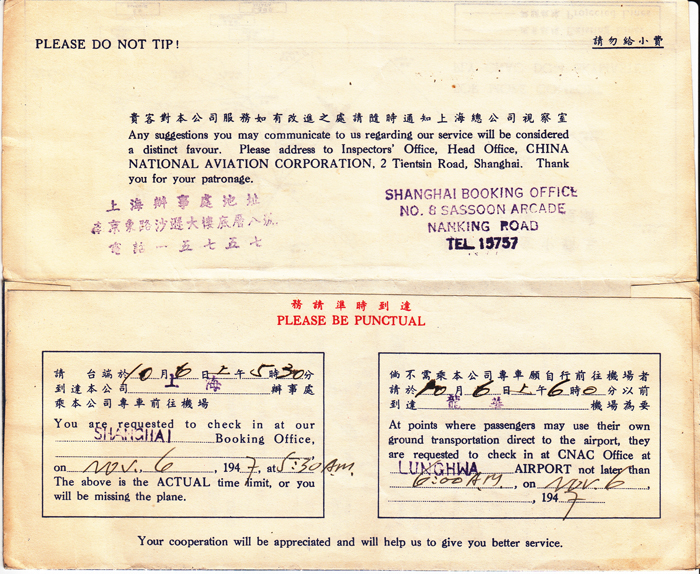 PLEASE DO NOT TIP!
請勿給小費
貴客對本公司服務如有改進之處請隨時通知上海總公司視察室
Any suggestions you may communicate to us regarding our service will be considered
a distinct favour. Please address to Inspectors' Office, Head Office, CHINA
NATIONAL AVIATION CORPORATION, 2 Tientsin Road, Shanghai. Thank
you for your patronage.
上海辦事處地址
京東路沙遜大樓底層八號
電話一五七五七
SHANGHAI BOOKING OFFICE
NO. 8 SASSOON ARCADE
NANKING ROAD
TEL 15757
務請準時到達
PLEASE BE PUNCTUAL
請 台端於10月6日上午5時30分
到達本公司 上海 辦事處
乘本公司專車前往機場
You are requested to check in at our
SHANGHAI Booking Office,
on Nov. 6, 1947, at 5:30 A.M.
The above is the ACTUAL time limit, or you
will be missing the plane.
倘不需乘本公司專車願自行前往機場者
請於10月6日上午6時0分以前
到達 龍華 機場為要
At points where passengers may use their own
ground transportation direct to the airport, they
are requested to check in at CNAC Office at
LUNGHWA AIRPORT not later than
6:00 A.M., on Nov. 6,
1947
Your cooperation will be appreciated and will help us to give you better service.